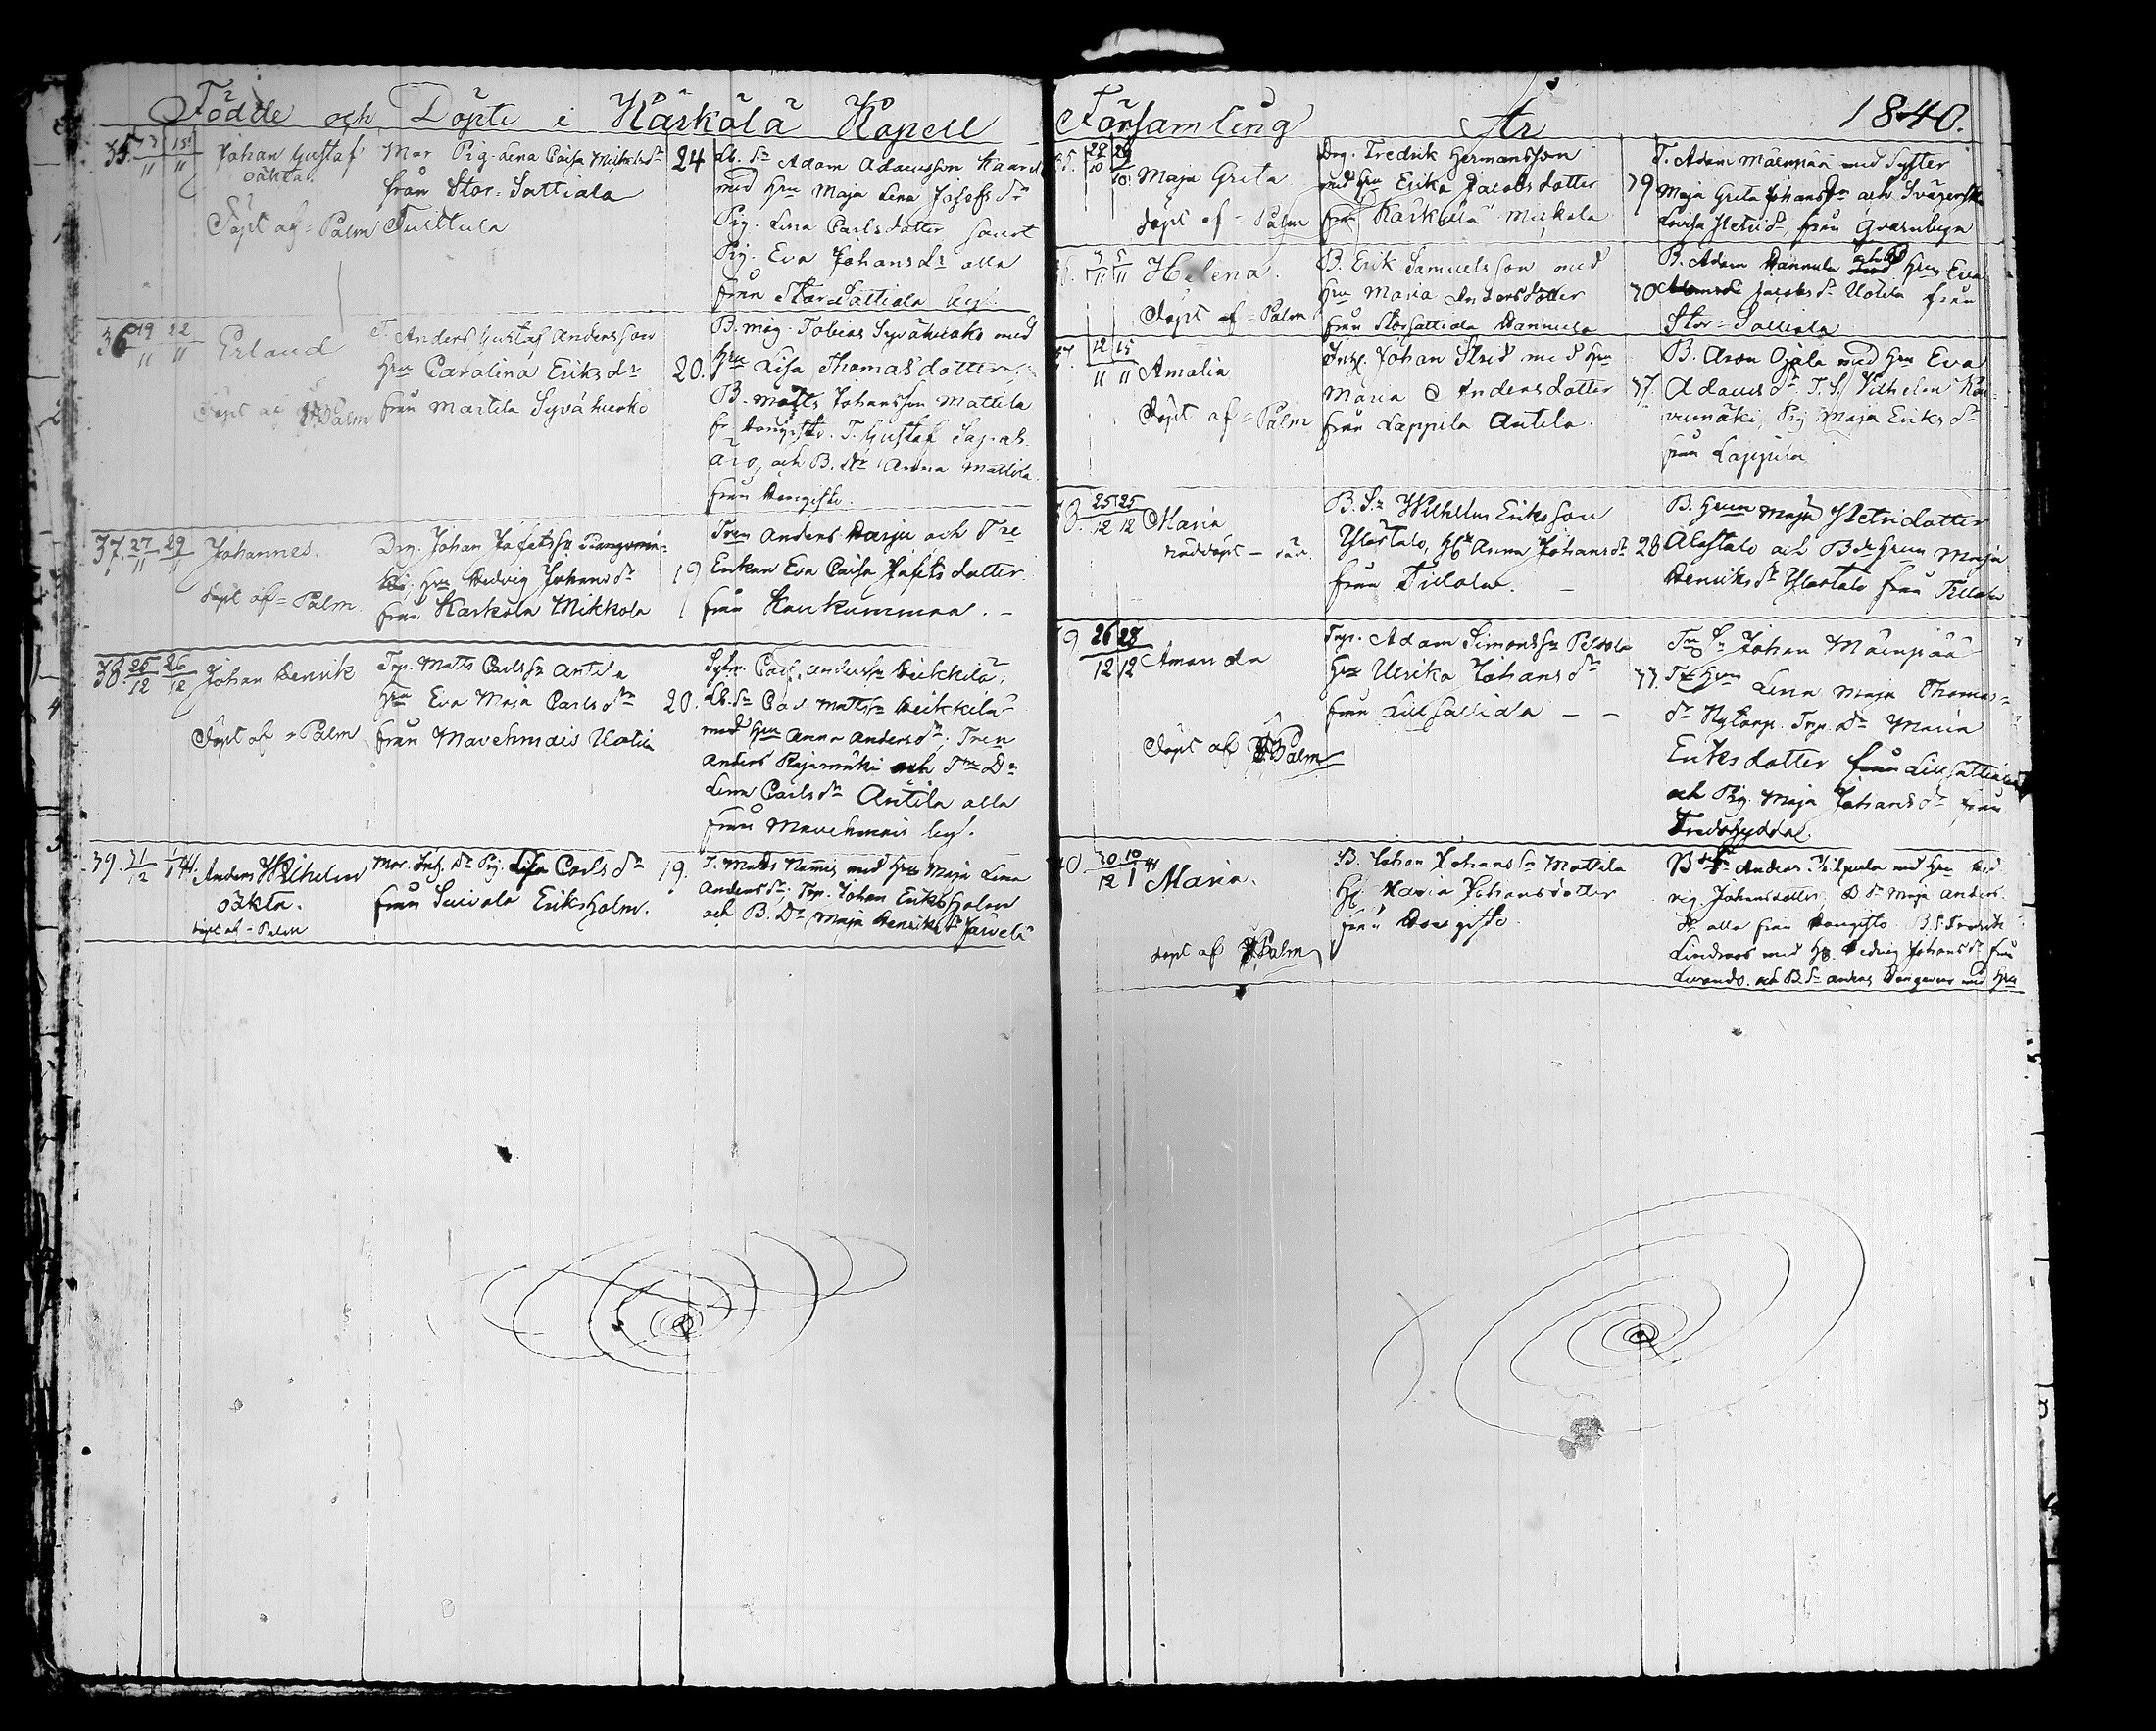 Födde och Döpte i Kärkölä Kapell
35. 13/11 15/11 Johan Gustaf
oäkta.
Döpt af = Palm
Mor Pig. Lena Caisa Michelsdr
från Stor-Sattiala
Tulttula
24
Lb. Sn Adam Adamsson Kaard
med Hru Maja Lena Josefsdr
Pig. Lena Carlsdotter samt
Pig. Eva Johansdr alla
från Stor=Sattiala by.
36 19/11 22/11 Erland
Döpt af Palm
T. Anders Gustaf Andersson
Hru Carolina Eriksdr
från Marttila Syvähuoko
20.
B. måg. Tobias Syvähuoko med
Hru Lisa Thomasdotter,
B. Matts Johansson Mattila
fr. Hongisto. T. Gustaf
och B. Dr Anna Mattila
från Hongisto.
37. 27/11 29/11 Johannes.
Döpt af = Palm
Drg. Johan Jafetssn
Hru Hedvig Johansdr
från Kärkölä Mikkola
19
Tren Anders Harju och Tre
Enkan Eva Caisa Jafetsdotter
från Haukunummea. –
38. 25/12 26/12 Johan Henrik
Döpt af = Palm
Trp. Matts Carlssn Antila
Hru Eva Maja Carlsdtr
från Mavehmais Uotila
20.
Sytn. Carl Anderssn Heikkilä,
Lb. Sn Carl Mattssn Heikkilä
med Hru Anna Andersdr; Tren
Anders Rajamäki och Tre Dr
Lena Carlsdr Antila alla
från Mavehmais by.
39. 31/12 1/1 41. Anders Wilhelm
oäkta.
Döpt af = Palm
Mor. Inh. Dr Pig. Lisa Carlsdr
från Suivala Eriksholm.
19.
T. Matts Niemis med Hru Maja Lena
Andersdr; Trp. Johan Eriksholm
och B. Dr Maja Henriksdr Järvelä
Församling År 1840.
35. 28/10 29/10 Maja Greta
Döpt af = Palm
Drg. Fredrik Hermansson
med Hru Erika Jacobsdotter
från Kärkölä Mickola
39
T. Adam Mäenpää med Syster
Maja Greta Johansdr och Svägerska
Lovisa från Qvarnbyn
3/11 5/11 Helena.
Döpt af = Palm
B. Erik Samuelsson med
Hru Maria Andersdotter
från Storsattiala Hannula
30
B. Adam Hannula och Hru Eva
Jacobsdr Uotila från
Stor=Sattiala
37 12/11 15/11 Amalia
Döpt af = Palm
Inh. Johan Strid med Hru
Maria Andersdotter
från Lappila Antila.
37.
B. Aron Ojala med Hru Eva
Adamsdr, T. S. Vilhelm
Pig Maja Eriksdr
från Lappila
38. 25/12 25/12 Maria
nöddöpt –
B. Sn Wilhelm Eriksson
Ylöstalo, Hu Anna Johansdr
från Tillola. –
28
B. Hrun Maja dotter
Alastalo och B. Hrun Maja
Henriksdr Ylöstalo från Tillola
39 26/12 28/12 Amanda
Döpt af Palm
Trp. Adam Simonssn Peltola
Hru Ulrika Johansdr
från Lillsattiala – –
37.
Tre Sn Johan Mäenpää
Tre Hru Lena Maja Thomas-
dr Nytorp. Trp. Dr Maria
Eriksdotter från Lillsattiala
och Pig. Maja Johansdr från
Fredshyddal.
40 30/12 10/1 41 Maria.
Döpt af Palm
B. Johan Johanssn Mattila
Hu Maria Johansdotter
från Hongisto.
B Sn Anders med Hru Hed-
vig Johansdotter, B. Dr Maja Anders-
dr alla från Hongisto. B. S. Fredrik
Lindroos med Hu. Hedvig Johansdr från
och B. Sn Anders med Hru